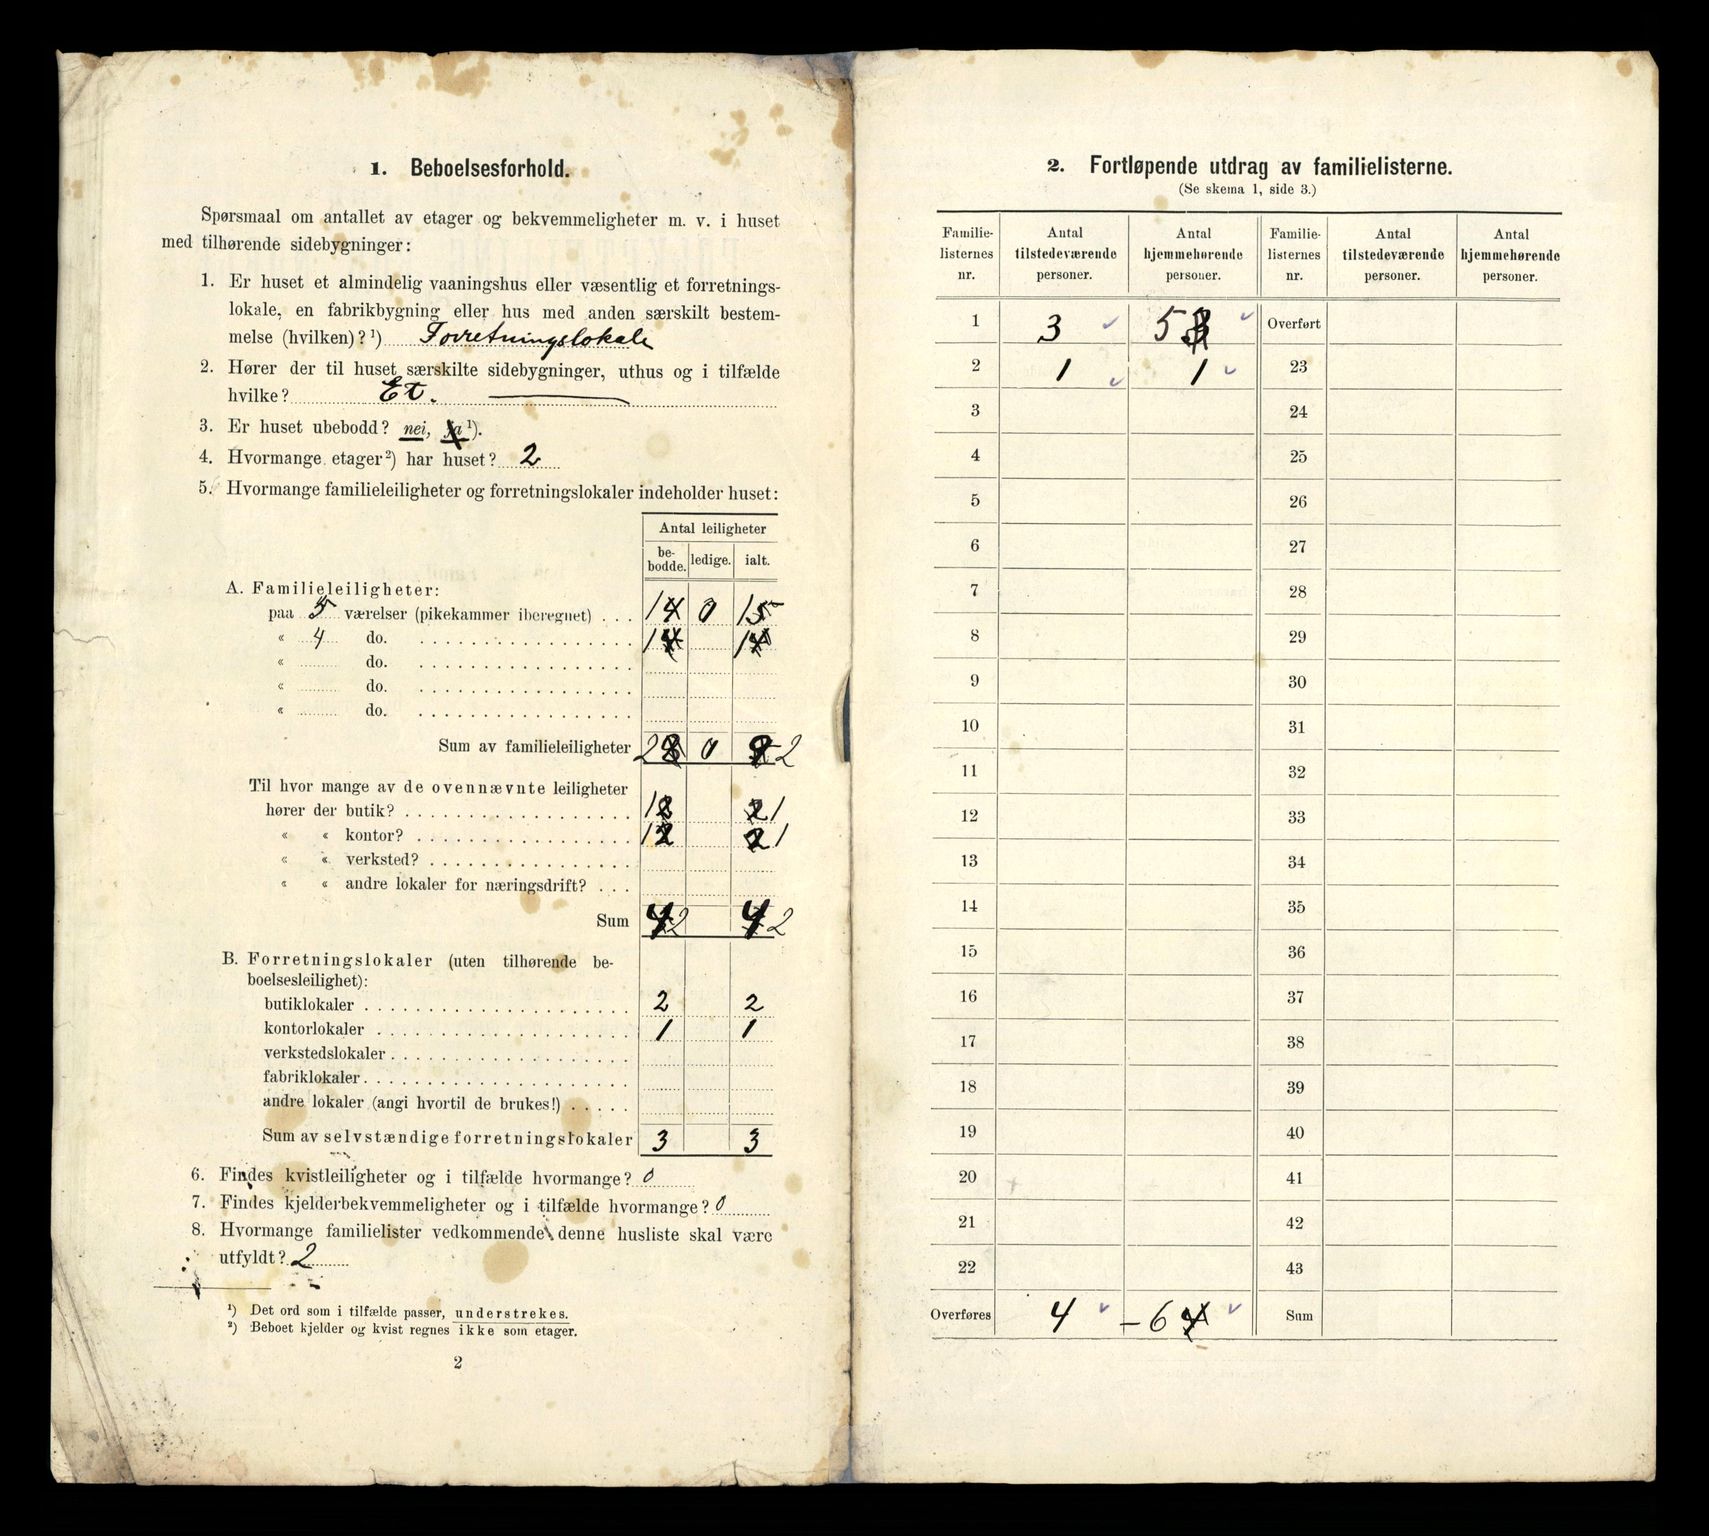 1. Beboelsesforhold.
Spørsmaal om antallet av etager og bekvemmeligheter m. v. i huset
med tilhørende sidebygninger:
1. Er huset et almindelig vaaningshus eller væsentlig et forretnings-
lokale, en fabrikbygning eller hus med anden særskilt bestem-
melse (hvilken)?¹) Forretningslokale
2. Hører der til huset særskilte sidebygninger, uthus og i tilfælde
hvilke? Et.
3. Er huset ubebodd? nei, ja¹).
4. Hvormange etager²) har huset? 2
5. Hvormange familieleiligheter og forretningslokaler indeholder huset:
Antal leiligheter
be-
bodde. ledige. ialt.
A. Familieleiligheter:
paa 5 værelser (pikekammer iberegnet) . . . 1 0 1
« 4 do. 1 1
« do.
« do.
« do.
Sum av familieleiligheter 2 0 2
Til hvor mange av de ovennævnte leiligheter
hører der butik? 1 2 2 1
« « kontor? 1 2 2 1
« « verksted?
« « andre lokaler for næringsdrift? . . .
Sum 4 2 4 2
B. Forretningslokaler (uten tilhørende be-
boelsesleilighet):
butiklokaler 2 2
kontorlokaler 1 1
verkstedslokaler
fabriklokaler
andre lokaler (angi hvortil de brukes!)
Sum av selvstændige forretningslokaler 3 3
6. Findes kvistleiligheter og i tilfælde hvormange? 0
7. Findes kjelderbekvemmeligheter og i tilfælde hvormange? 0
8. Hvormange familielister vedkommende denne husliste skal være
utfyldt? 2
¹) Det ord som i tilfælde passer, understrekes.
²) Beboet kjelder og kvist regnes ikke som etager.
2
2. Fortløpende utdrag av familielisterne.
(Se skema 1, side 3.)
Familie- Antal Antal Familie- Antal Antal
listernes tilstedeværende hjemmehørende listernes tilstedeværende hjemmehørende
nr. personer. personer. nr. personer. personer.
1 3 5 3 Overført
2 1 1 23
3 24
4 25
5 26
6 27
7 28
8 29
9 30
10 31
11 32
12 33
13 34
14 35
15 36
16 37
17 38
18 39
19 40
20 41
21 42
22 43
Overføres 4 – 6 4 Sum